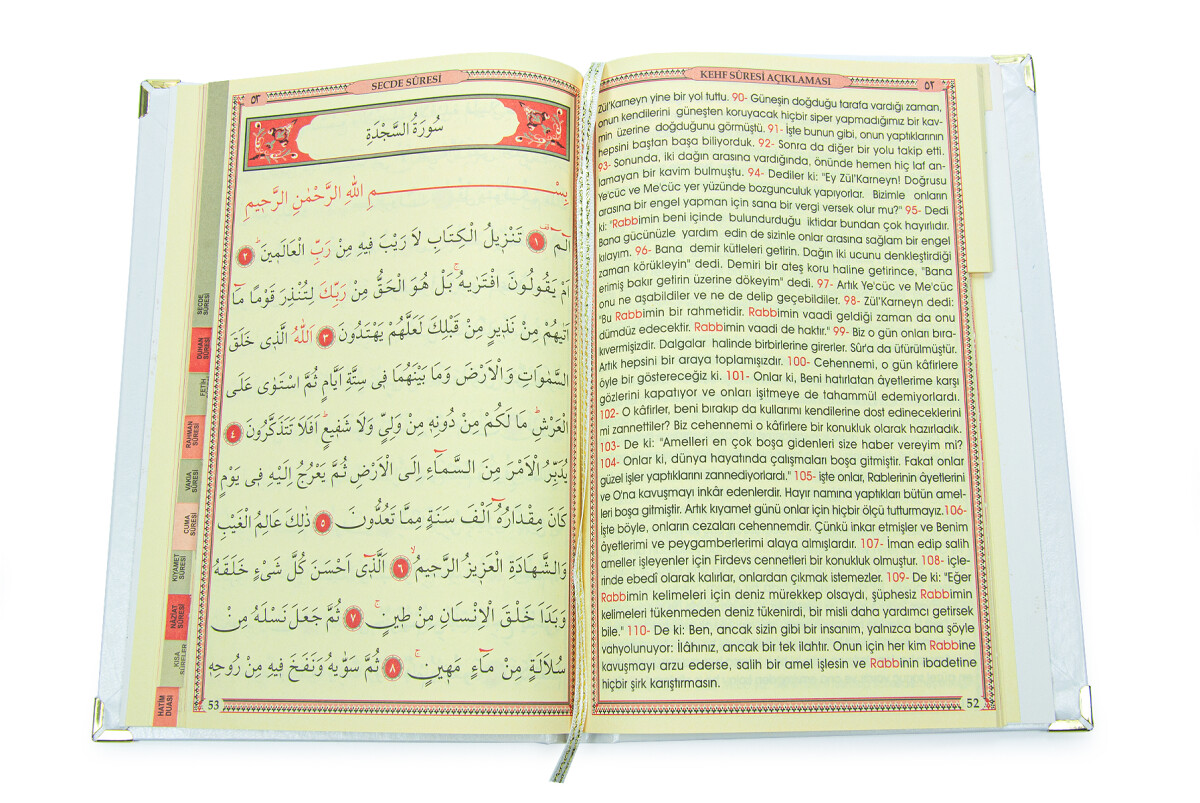 KEHF SÛRESİ AÇIKLAMASI
٥٢
Zül'Karneyn yine bir yol tuttu. 90- Güneşin doğduğu tarafa vardığı zaman,
onun kendilerini güneşten koruyacak hiçbir siper yapmadığımız bir kav-
min üzerine doğduğunu görmüştü. 91- İşte bunun gibi, onun yaptıklarının
hepsini baştan başa biliyorduk. 92- Sonra da diğer bir yolu takip etti.
93- Sonunda, iki dağın arasına vardığında, önünde hemen hiç laf an-
lamayan bir kavim bulmuştu. 94- Dediler ki: "Ey Zül'Karneyn! Doğrusu
Ye'cüc ve Me'cüc yer yüzünde bozgunculuk yapıyorlar. Bizimle onların
arasına bir engel yapman için sana bir vergi versek olur mu?" 95- Dedi
ki: "Rabbimin beni içinde bulundurduğu iktidar bundan çok hayırlıdır.
Bana gücünüzle yardım edin de sizinle onlar arasına sağlam bir engel
kılayım. 96- Bana demir kütleleri getirin. Dağın iki ucunu denkleştirdiği
zaman körükleyin" dedi. Demiri bir ateş koru haline getirince, "Bana
erimiş bakır getirin üzerine dökeyim" dedi. 97- Artık Ye'cüc ve Me'cüc
onu ne aşabildiler ve ne de delip geçebildiler. 98- Zül'Karneyn dedi:
"Bu Rabbimin bir rahmetidir. Rabbimin vaadi geldiği zaman da onu
dümdüz edecektir. Rabbimin vaadi de haktır." 99- Biz o gün onları bıra-
kıvermişizdir. Dalgalar halinde birbirlerine girerler. Sûr'a da üfürülmüştür.
Artık hepsini bir araya toplamışızdır. 100- Cehennemi, o gün kâfirlere
öyle bir göstereceğiz ki. 101- Onlar ki, Beni hatırlatan âyetlerime karşı
gözlerini kapatıyor ve onları işitmeye de tahammül edemiyorlardı.
102- O kâfirler, beni bırakıp da kullarımı kendilerine dost edineceklerini
mi zannettiler? Biz cehennemi o kâfirlere bir konukluk olarak hazırladık.
103- De ki: "Amelleri en çok boşa gidenleri size haber vereyim mi?
104- Onlar ki, dünya hayatında çalışmaları boşa gitmiştir. Fakat onlar
güzel işler yaptıklarını zannediyorlardı." 105- işte onlar, Rablerinin âyetlerini
ve O'na kavuşmayı inkâr edenlerdir. Hayır namına yaptıkları bütün amel-
leri boşa gitmiştir. Artık kıyamet günü onlar için hiçbir ölçü tutturmayız.106-
İşte böyle, onların cezaları cehennemdir. Çünkü inkar etmişler ve Benim
âyetlerimi ve peygamberlerimi alaya almışlardır. 107- İman edip salih
ameller işleyenler için Firdevs cennetleri bir konukluk olmuştur. 108- içle-
rinde ebedî olarak kalırlar, onlardan çıkmak istemezler. 109- De ki: "Eğer
Rabbimin kelimeleri için deniz mürekkep olsaydı, şüphesiz Rabbimin
kelimeleri tükenmeden deniz tükenirdi, bir misli daha yardımcı getirsek
bile." 110- De ki: Ben, ancak sizin gibi bir insanım, yalnızca bana şöyle
vahyolunuyor: İlâhınız, ancak bir tek ilahtır. Onun için her kim Rabbine
kavuşmayı arzu ederse, salih bir amel işlesin ve Rabbinin ibadetine
hiçbir şirk karıştırmasın.
52
٥٣
SECDE SÛRESİ
سُورَةُ السَّجْدَةِ
بِسْمِ اللهِ الرَّحْمٰنِ الرَّحِيمِ
الٓمٓ ﴿١﴾ تَنْزِيلُ الْكِتَابِ لَا رَيْبَ فِيهِ مِنْ رَبِّ الْعَالَمِينَ ﴿٢﴾
اَمْ يَقُولُونَ افْتَرٰيهُ بَلْ هُوَ الْحَقُّ مِنْ رَبِّكَ لِتُنْذِرَ قَوْمًا مَٓا
اَتٰيهُمْ مِنْ نَذِيرٍ مِنْ قَبْلِكَ لَعَلَّهُمْ يَهْتَدُونَ ﴿٣﴾ اَللهُ الَّذِي خَلَقَ
السَّمٰوَاتِ وَالْاَرْضَ وَمَا بَيْنَهُمَا فِي سِتَّةِ اَيَّامٍ ثُمَّ اسْتَوٰى عَلَى
الْعَرْشِ مَا لَكُمْ مِنْ دُونِهِ مِنْ وَلِيٍّ وَلَا شَفِيعٍ اَفَلَا تَتَذَكَّرُونَ ﴿٤﴾
يُدَبِّرُ الْاَمْرَ مِنَ السَّمَٓاءِ اِلَى الْاَرْضِ ثُمَّ يَعْرُجُ اِلَيْهِ فِي يَوْمٍ
كَانَ مِقْدَارُهُٓ اَلْفَ سَنَةٍ مِمَّا تَعُدُّونَ ﴿٥﴾ ذٰلِكَ عَالِمُ الْغَيْبِ
وَالشَّهَادَةِ الْعَزِيزُ الرَّحِيمُ ﴿٦﴾ اَلَّذِٓي اَحْسَنَ كُلَّ شَيْءٍ خَلَقَهُ
وَبَدَاَ خَلْقَ الْاِنْسَانِ مِنْ طِينٍ ﴿٧﴾ ثُمَّ جَعَلَ نَسْلَهُ مِنْ
سُلَالَةٍ مِنْ مَٓاءٍ مَهِينٍ ﴿٨﴾ ثُمَّ سَوّٰيهُ وَنَفَخَ فِيهِ مِنْ رُوحِهِ
53
SECDE SÛRESİ
DUHAN SÛRESİ
FETİH
RAHMAN SÛRESİ
VAKIA SÛRESİ
CUMA SÛRESİ
KIYAMET SÛRESİ
NÂZİAT SÛRESİ
KISA SÛRELER
HATİM DUASI